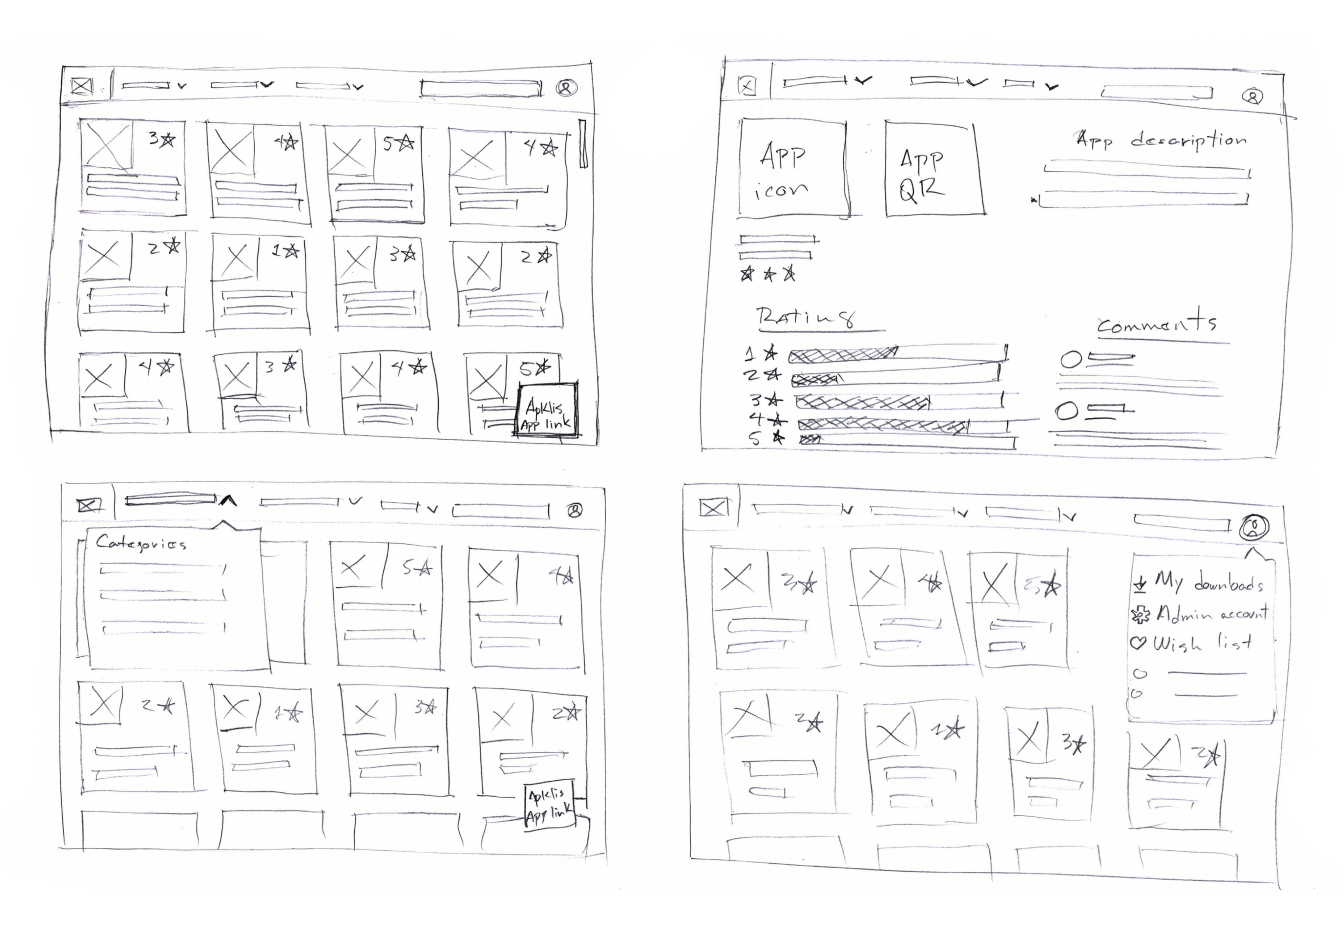 3☆
4☆
5☆
4☆
2☆
1☆
3☆
2☆
4☆
3☆
4☆
5☆
Apklis
App link
App
icon
App
QR
App description
☆ ☆ ☆
Rating
1 ☆
2 ☆
3 ☆
4 ☆
5 ☆
comments
Categories
5☆
4☆
2☆
1☆
3☆
2☆
Apklis
App link
3☆
4☆
5☆
My downloads
Admin account
Wish list
2☆
1☆
3☆
2☆